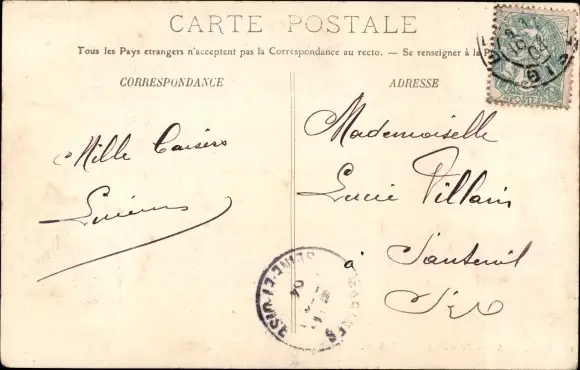 CARTE POSTALE
Tous les Pays etrangers n'acceptent pas la Correspondance au recto. — Se renseigner à la P
CORRESPONDANCE
ADRESSE
Mille baisers
Lucien
Mademoiselle
Lucie Villain
à Santeuil
S et O
SEINE-ET-OISE
04
POSTES